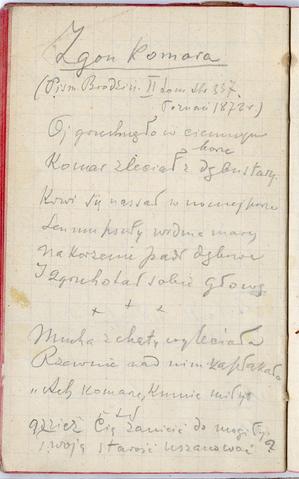 Zgon komara
(Pism Brodziń. II tom str 337.
Poznań 1872 r)
Oj gruchnęło w ciemnym
borze
Komar zleciał z dębu stary.
Krwi się nassał w nocnej porze
Sen mu psuły widma mary
na korzenie padł dębowe
I zgruchotał sobie głowę
+ + +
Mucha z chaty wyleciała
Rzewnie nad nim zapłakała
"Ach komarze, kumie miły
gdzież Cię zanieść do mogiły
i twoją starość uszanować